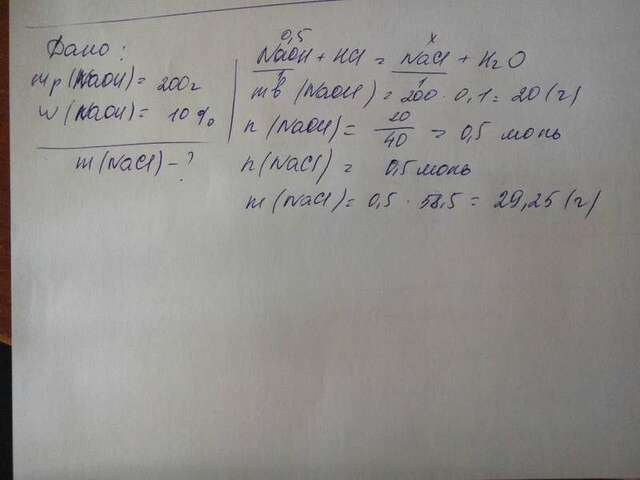 Дано:
mр(NaOH) = 200г
w(NaOH) = 10%
m(NaCl) - ?
0,5 x
NaOH + HCl = NaCl + H2O
1 1
mв(NaOH) = 200 · 0,1 = 20(г)
n(NaOH) = 20/40 = 0,5 моль
n(NaCl) = 0,5 моль
m(NaCl) = 0,5 · 58,5 = 29,25(г)